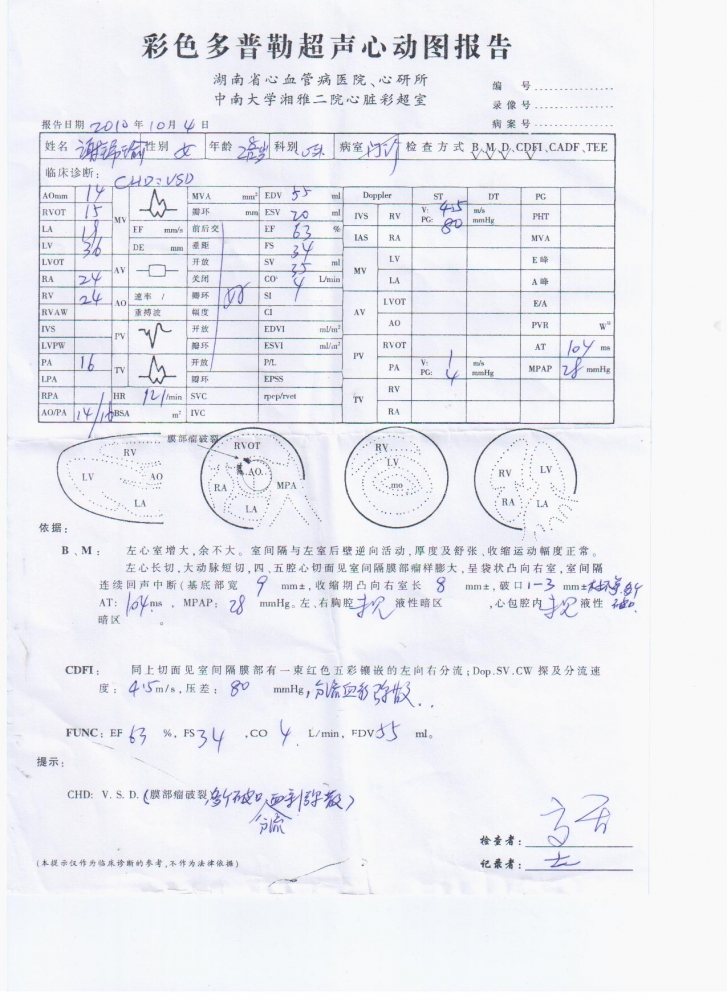 彩色多普勒超声心动图报告
湖南省心血管病医院、心研所
中南大学湘雅二院心脏彩超室
编 号
录像号
病案号
报告日期 2010 年 10 月 4 日
姓名 性别 女 年龄 科别 病室 门诊 检查方式 B、M、D、CDFI、CADF、TEE
临床诊断: CHD:VSD
AOmm 14 MV MVA mm² EDV 55 ml Doppler ST DT PG
RVOT 15 瓣环 mm ESV 20 ml IVS RV V: 4.5 m/s PG: 80 mmHg PHT
LA 18 EF mm/s 前后交 EF 63 % IAS RA MVA
LV 36 DE mm 差距 FS 34 MV LV E峰
LVOT AV 开放 SV 35 ml LA A峰
RA 24 关闭 CO 4 L/min AV LVOT E/A
RV 24 AO 速率 / 瓣环 SI AO PVR W
RVAW 重搏波 幅度 CI PV RVOT AT 104 ms
IVS PV 开放 EDVI ml/m² PA V: 1 m/s PG: 4 mmHg MPAP 28 mmHg
LVPW 瓣环 ESVI ml/m² TV RV
PA 16 TV 开放 P/L RA
LPA 瓣环 EPSS
RPA HR 121/min SVC rpep/rvet
AO/PA 14/16 BSA m² IVC
膜部瘤破裂
RV LV AO LA
RVOT AO RA MPA LA
RV LV mo
RV LV RA LA
依据:
B、M: 左心室增大,余不大。室间隔与左室后壁逆向活动,厚度及舒张、收缩运动幅度正常。
左心长切,大动脉短切,四、五腔心切面见室间隔膜部瘤样膨大,呈袋状凸向右室,室间隔
连续回声中断(基底部宽 9 mm±,收缩期凸向右室长 8 mm±,破口 1-3 mm±
AT: 104 ms ,MPAP: 28 mmHg。左、右胸腔 未见 液性暗区 ,心包腔内 未见 液性
暗区 。
CDFI: 同上切面见室间隔膜部有一束红色五彩镶嵌的左向右分流;Dop.SV.CW 探及分流速
度: 4.5 m/s,压差: 80 mmHg,分流血彩弥散..
FUNC: EF 63 %, FS 34 ,CO 4 L/min, EDV 55 ml。
提示:
CHD: V. S. D. (膜部瘤破裂 多个破口 分流 血彩弥散)
检查者:
记录者:
(本提示仅作为临床诊断的参考,不作为法律依据)